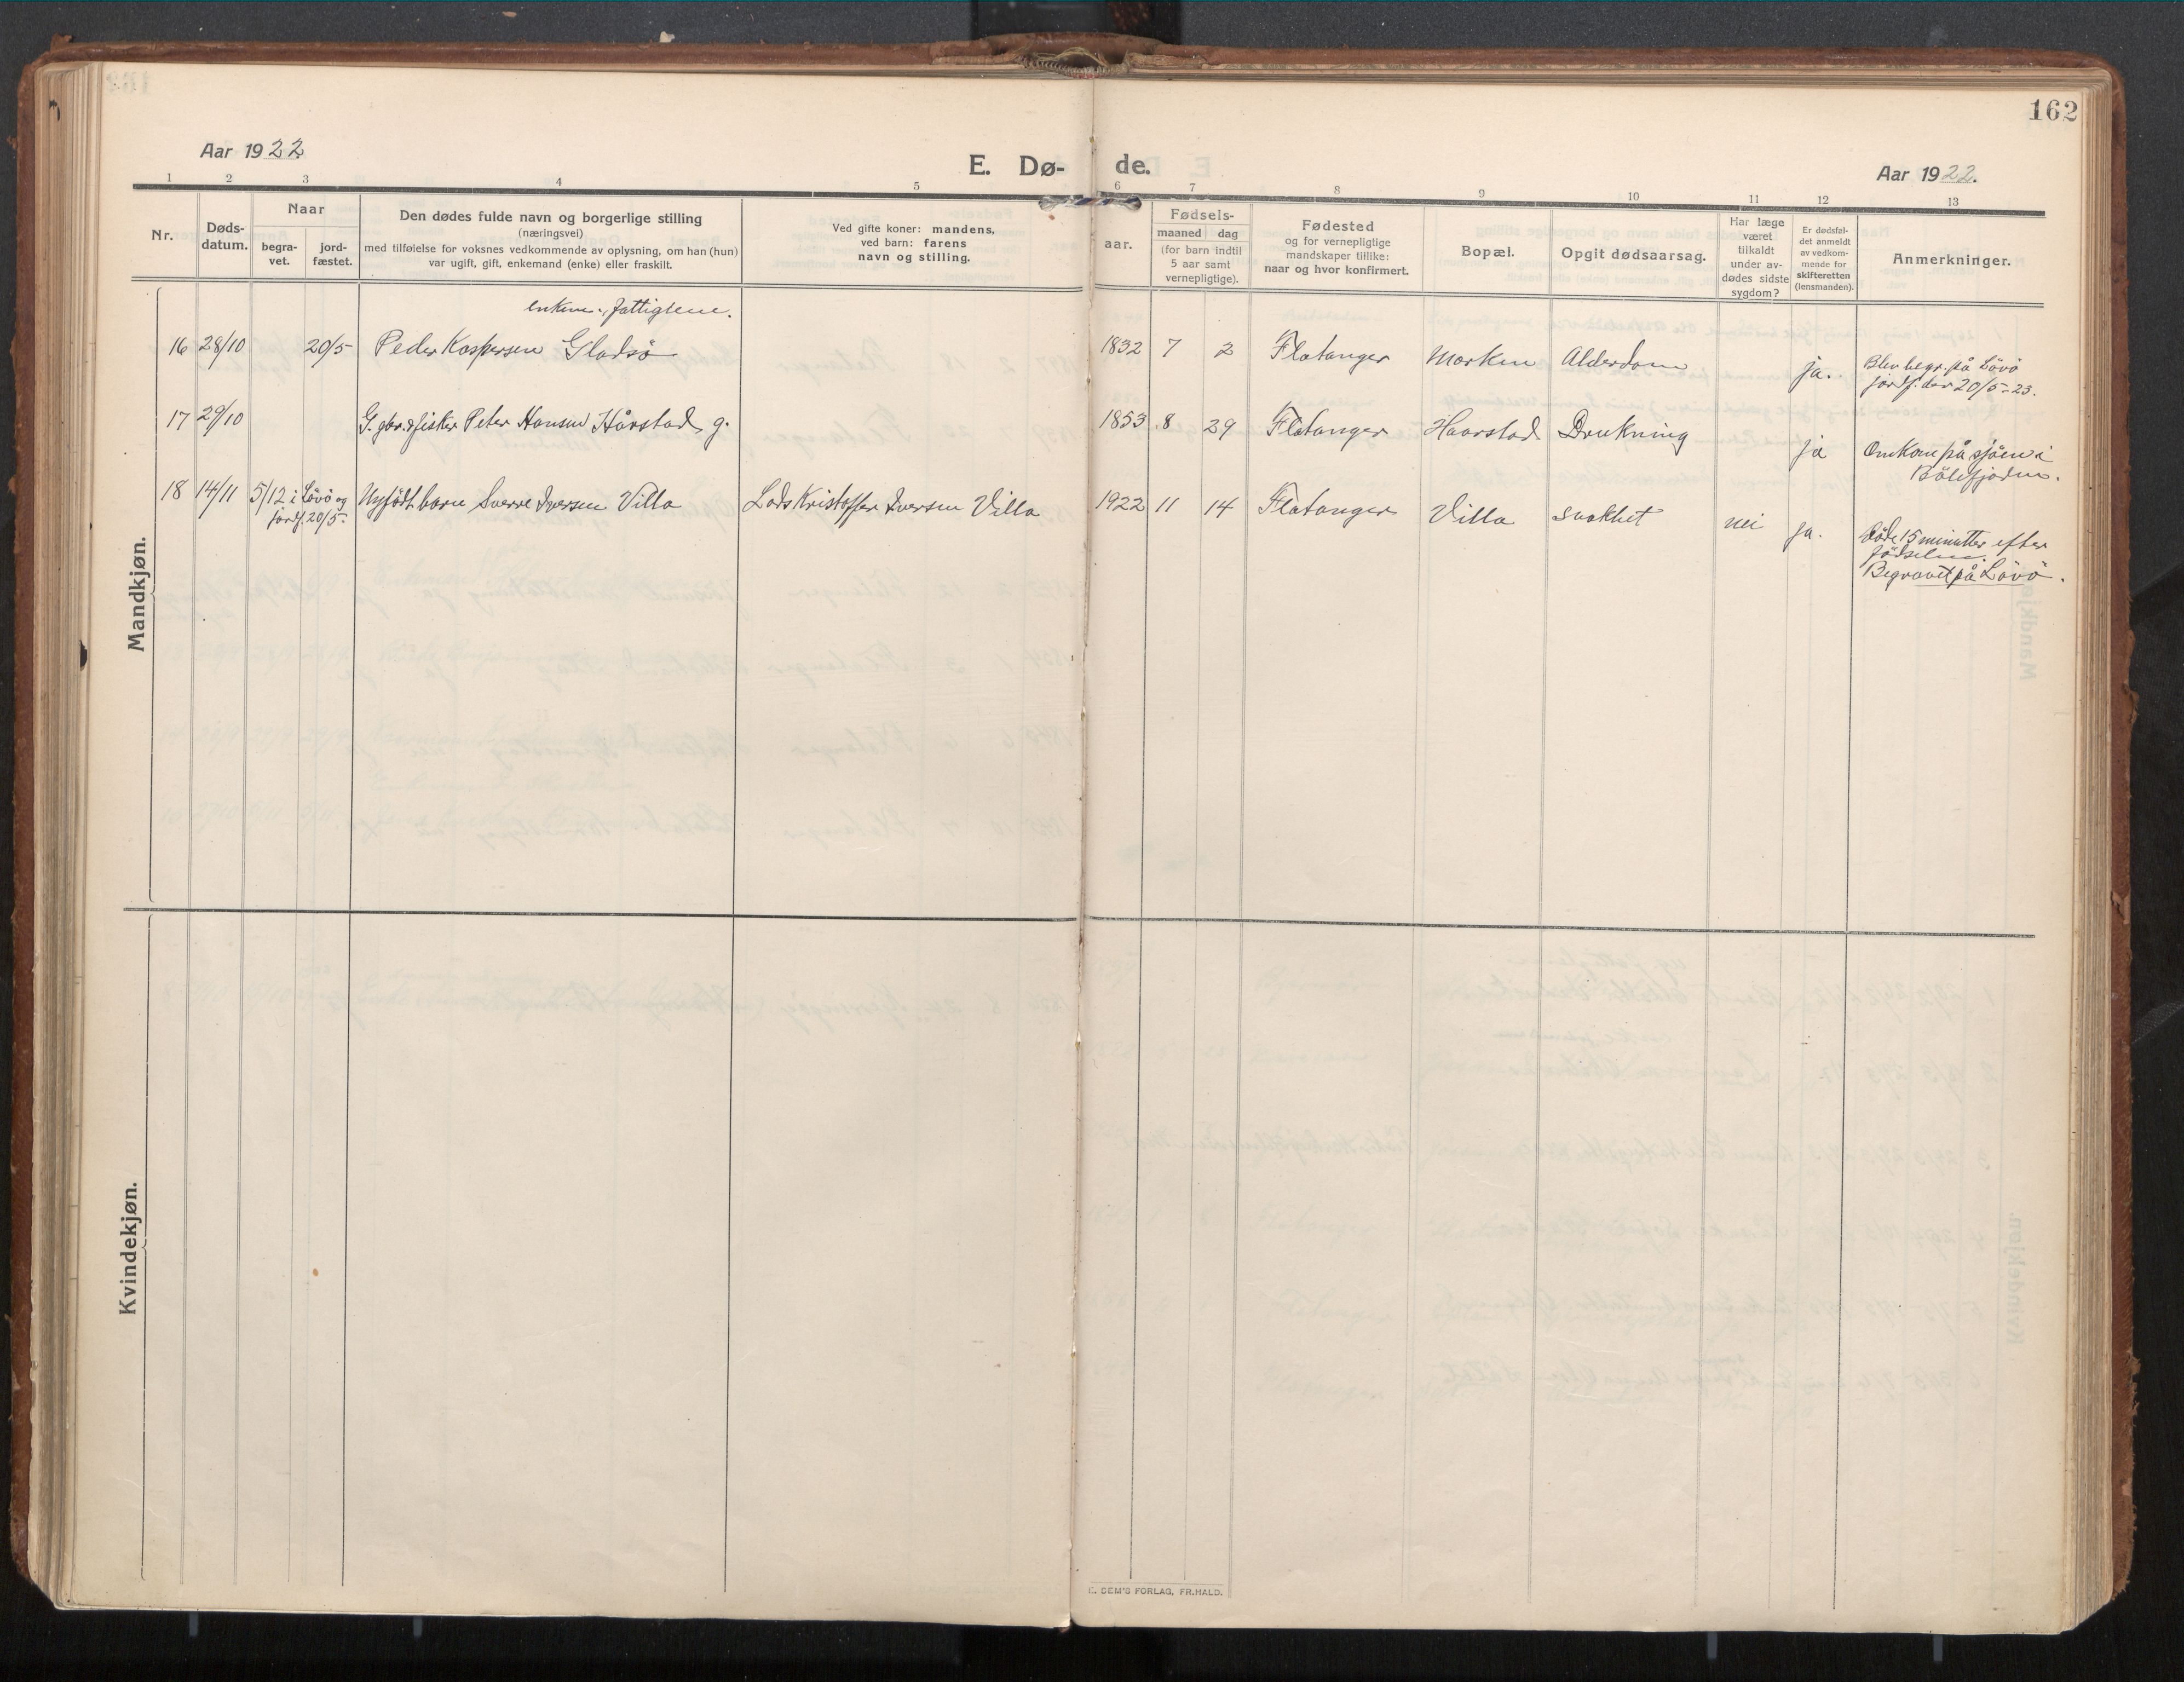 162
Aar 1922
E. Dø-
de.
Aar 1922.
1 2 3 4 5 6 7 8 9 10 11 12 13
Nr.
Døds-
datum.
Naar
begra-
vet.
jord-
fæstet.
Den dødes fulde navn og borgerlige stilling
(næringsvei)
med tilføielse for voksnes vedkommende av oplysning, om han (hun)
var ugift, gift, enkemand (enke) eller fraskilt.
Ved gifte koner: mandens,
ved barn: farens
navn og stilling.
aar.
Fødsels-
maaned dag
(for barn indtil
5 aar samt
vernepligtige).
Fødested
og for vernepligtige
mandskaper tillike:
naar og hvor konfirmert.
Bopæl.
Opgit dødsaarsag.
Har læge
været
tilkaldt
under av-
dødes sidste
sygdom?
Er dødsfal-
det anmeldt
av vedkom-
mende for
skifteretten
(lensmanden).
Anmerkninger.
Mandkjøn.
16 28/10 20/5 Peder Kaspersen Gladsö 1832 7 2 Flatanger Marken Alderdom ja. Blev begr. på Lövö
jordf. den 20/5-23.
17 29/10 G.br. og fisker Peter Hansen Hårstad g. 1853 8 29 Flatanger Haarstad Drukning ja Omkom på sjöen i
18 14/11 5/12 i Lövö og
jordf. 20/5- Nyfödt barn Sverre Iversen Villa Lars Kristoffer Iversen Villa 1922 11 14 Flatanger Villa svakhet nei ja. Döde 15 minutter efter
födselen.
Begravet på Lövö.
Kvindekjøn.
E. SEM'S FORLAG, FR.HALD.